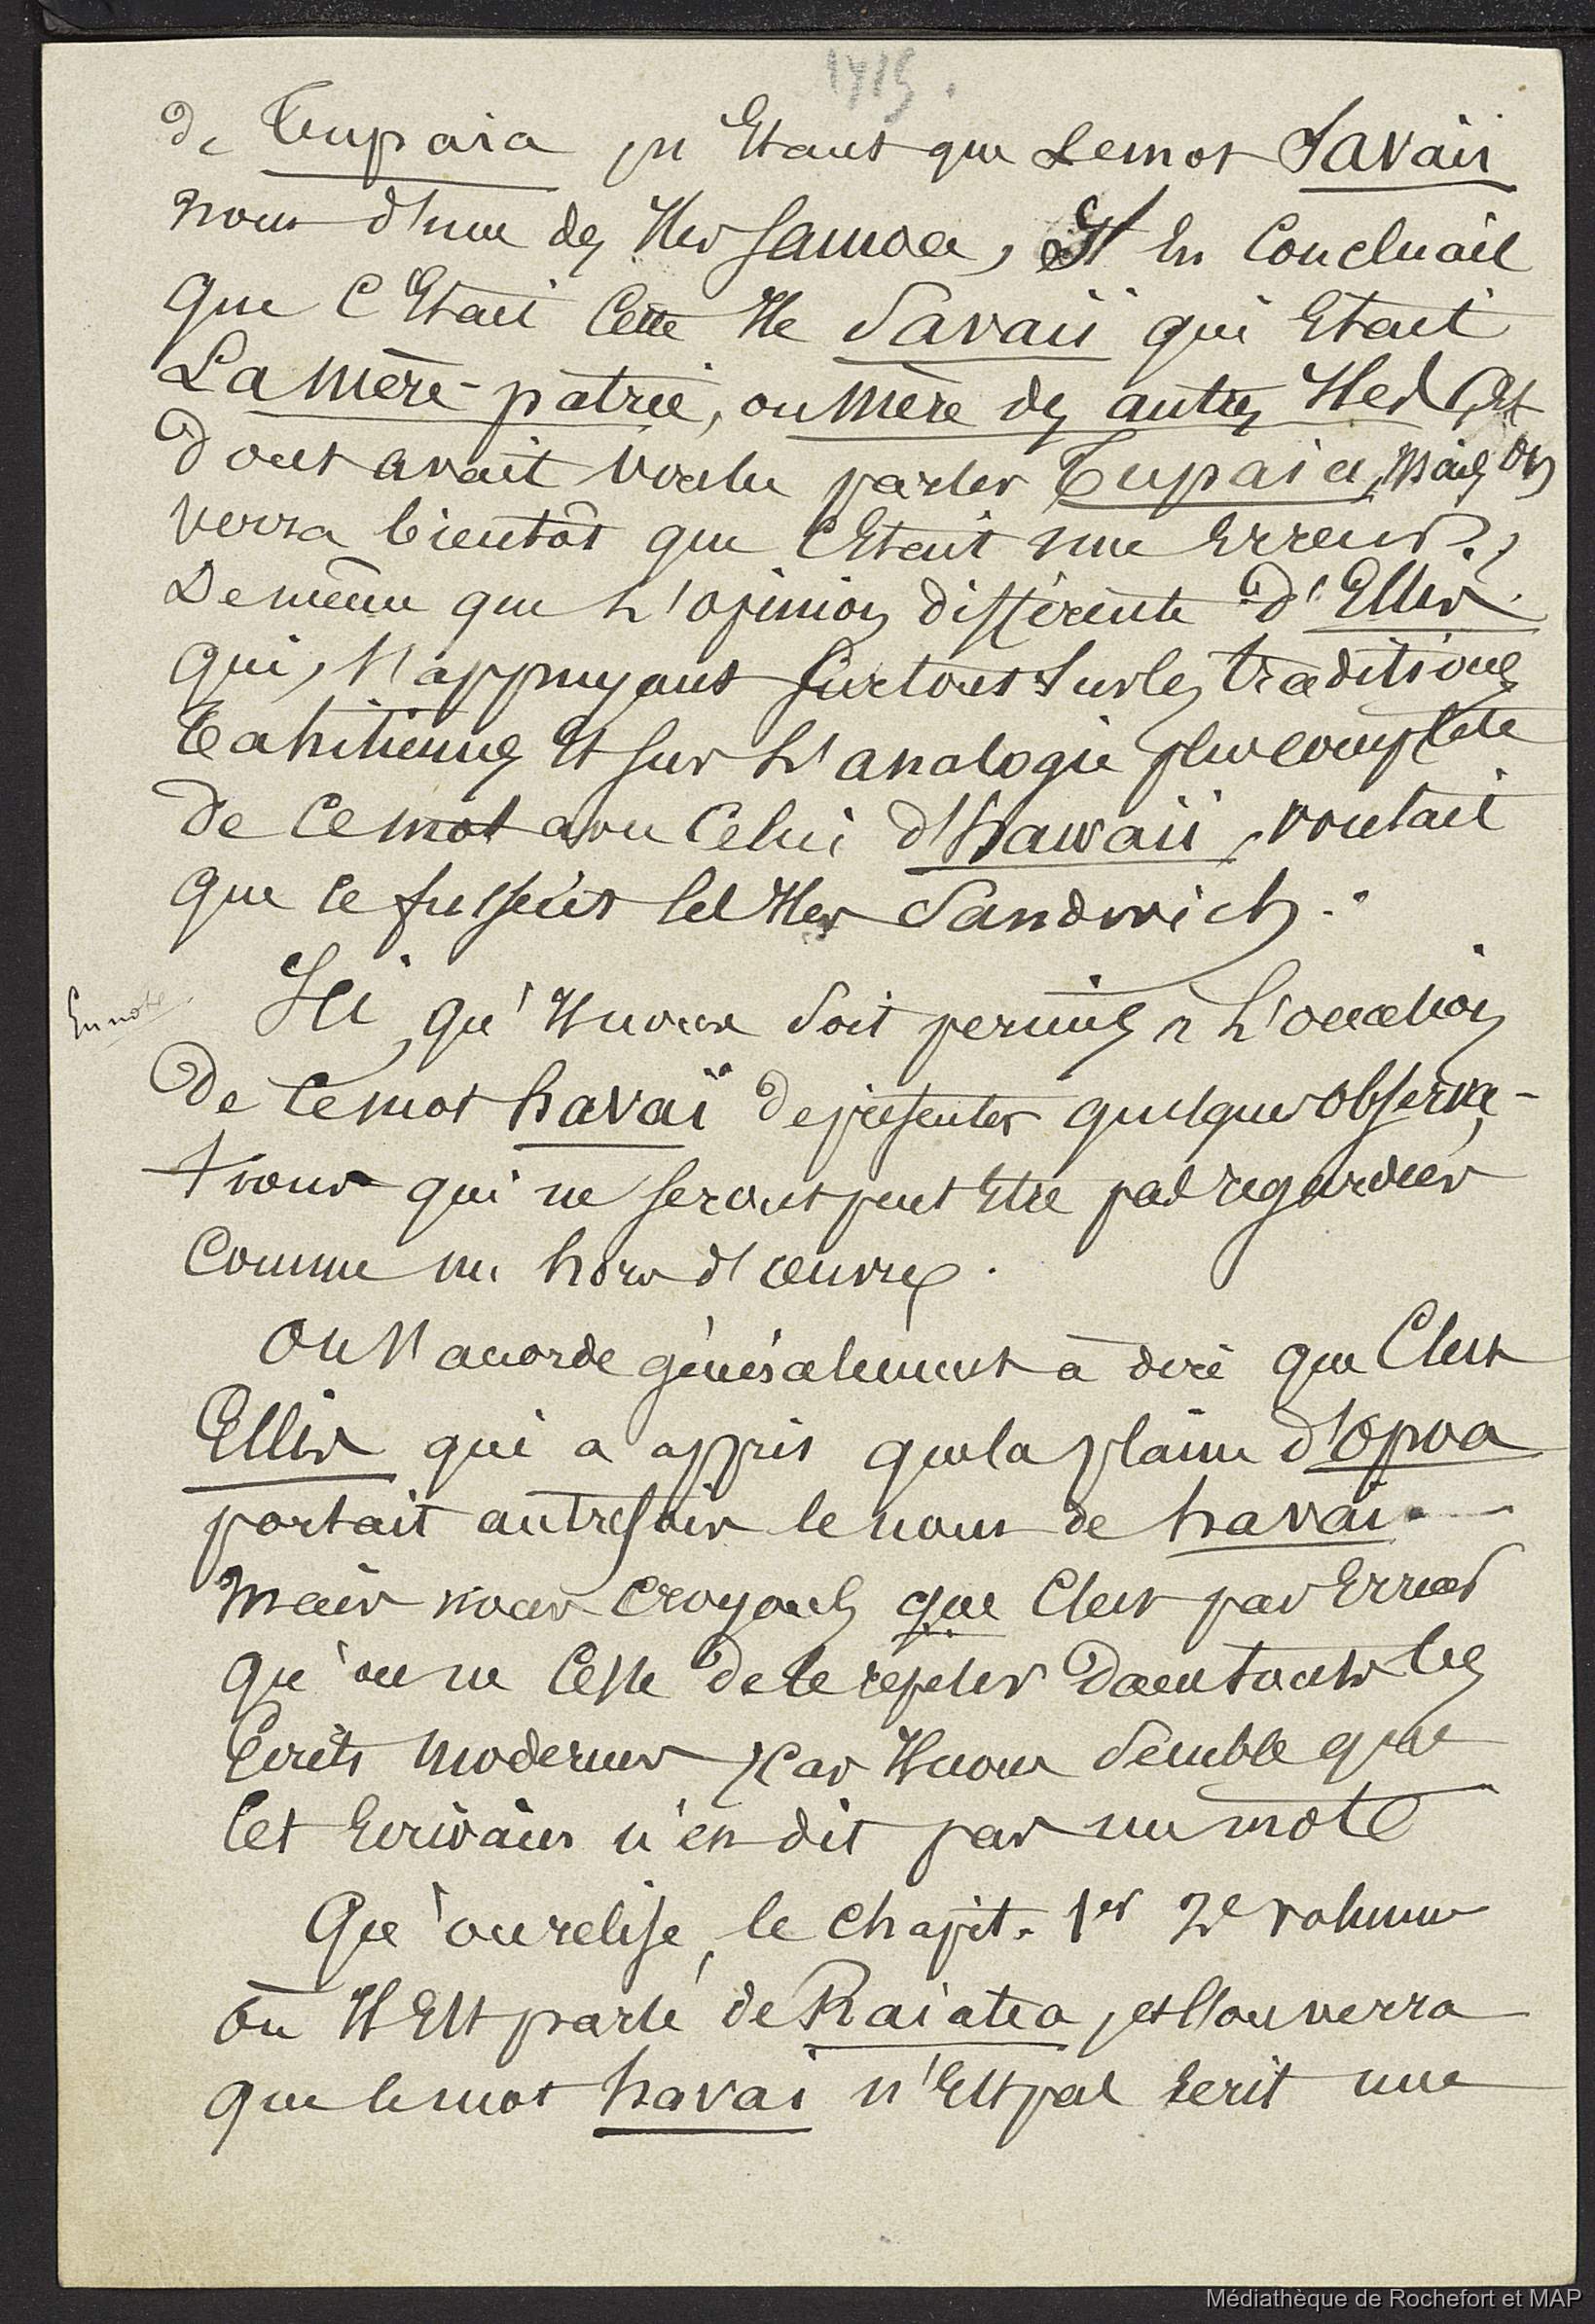 1415.
de Tupaia n'étant que le mot Savaii
nom d'une des îles Samoa, Il en concluait
que c'était cette île Savaii qui était
La mère-patrie, ou mère des autres îles
dont avait voulu parler Tupaia, mais on
verra bientôt que c'était une erreur,
De même que l'opinion différente d'Ellis
qui, s'appuyant surtout sur les traditions
tahitiennes et sur l'analogie plus complète
de ce mot avec celui d'hawaii, voulait
que ce fussent les îles Sandwich.
En note.
Ici, qu'il nous soit permis à l'occasion
de ce mot havaï de présenter quelques observa-
tions qui ne seront peut être pas regardées
comme un hors d'œuvre.
On s'accorde généralement à dire que c'est
Ellis qui a appris que la plaine d'Opoa
portait autrefois le nom de havai.
mais nous croyons que c'est par erreur
qu'on ne cesse de le répéter dans tous les
écrits modernes, car il nous semble que
cet écrivain n'en dit pas un mot.
Qu'on relise, le chapit. 1er 2e volume
où il est parlé de Raiatea, et l'on verra
que le mot havai n'est pas écrit une
Médiathèque de Rochefort et MAP